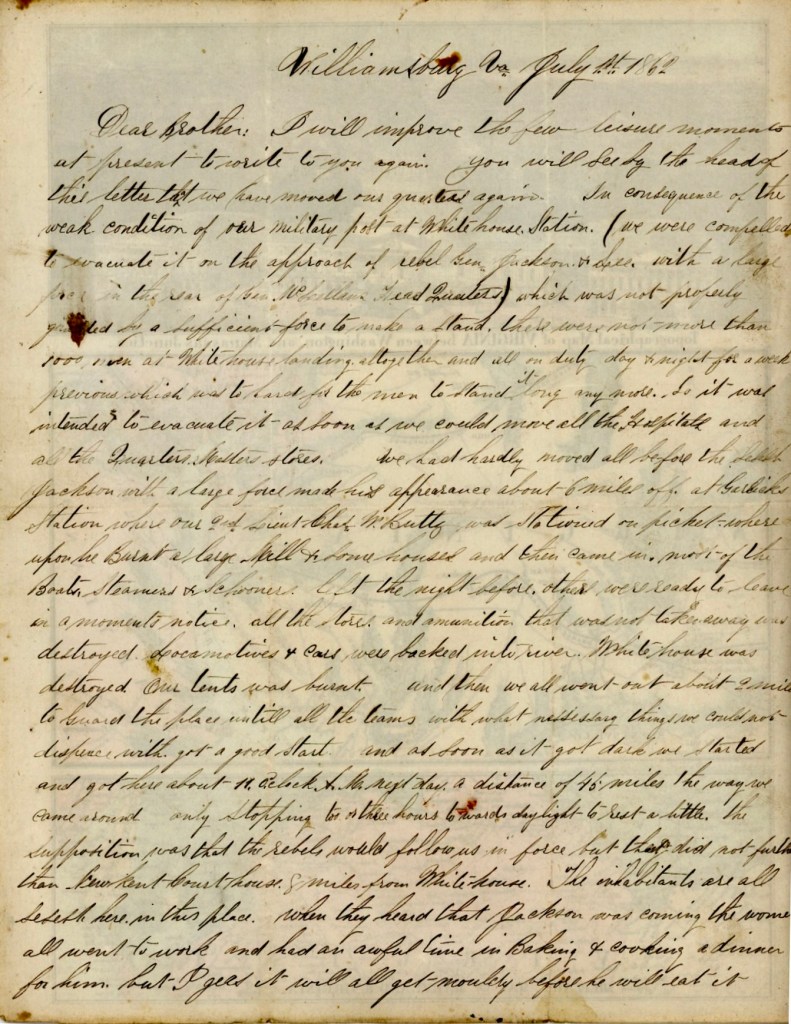 Williamsburg Va July 1st 1862
Dear Brother: I will improve the few leisure moments
at present to write to you again. you will See by the head of
this letter that we have moved our quarters again. In consequence of the
weak condition of our military post at White house Station. (we were compelled
to evacuate it on the approach of rebel Gen. Jackson & Lee. with a large
in the rear of Gen McClellan Head Quarters) which was not properly
guarded by a Sufficient force to make a Stand. there were not more than
1000 men at White house landing. altogether and all on duty day & night for a week
previous which was to hard for the men to Stand it long any more. So it was
intended to evacuate it as Soon as we could move all the Hospitals and
all the Quarters Masters stores. We had hardly moved all before the
Jackson with a large force made his appearance about 6 miles off. at Garlicks
Station where our 2nd Lieut Chas W. Butts was stationed on picket where
upon he Burnt a large Mill & Some houses and then came in. most of the
Boats, Steamers & Schooners. left the night before. others were ready to leave
in a moments notice. all the stores. and amunition that was not taken away was
destroyed. Locamotives & cars were backed into river. White house was
destroyed Our tents was burnt. and then we all went out about 2 miles
to Guard the place untill all the teams with what nessessary things we could not
dispence with. got a good Start and as soon as it got dark we started
and got here about 11. Oclock A. M. next day. a distance of 45 miles the way we
came around only Stopping two or three hours towards daylight to rest a little. The
supposition was that the rebels would follow us in force but they did not further
than New Kent Court house. 8 miles from White house. The inhabitants are all
Sesesh here in this place. when they heard that Jackson was coming the women
all went to work and had an awful time in Baking & cooking a dinner
for him. but I gess it will all get mouldy before he will eat it